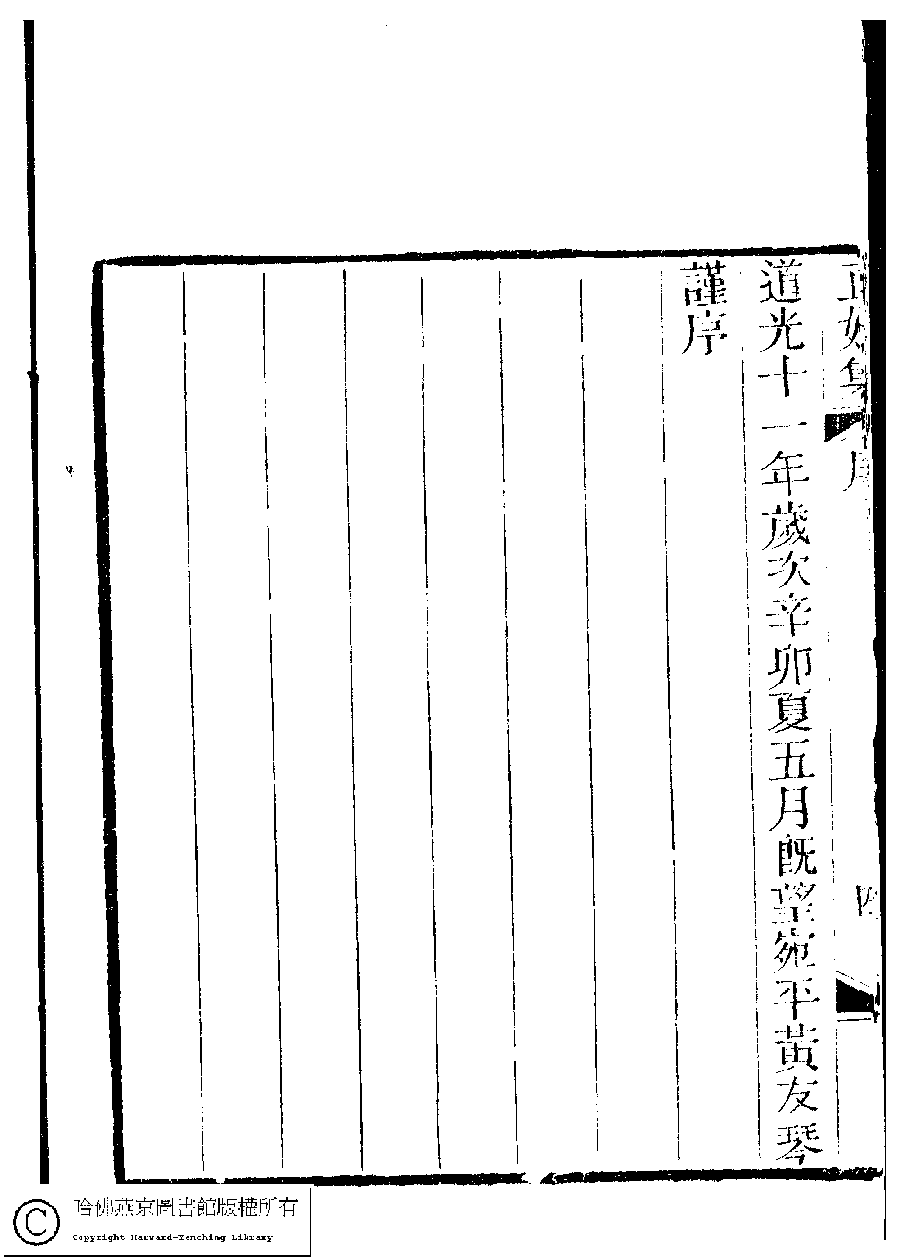 正始集 序
四
道光十一年歲次辛卯夏五月既望宛平黃友琴
謹序
哈佛燕京圖書館版權所有
Copyright Harvard-Yenching Library